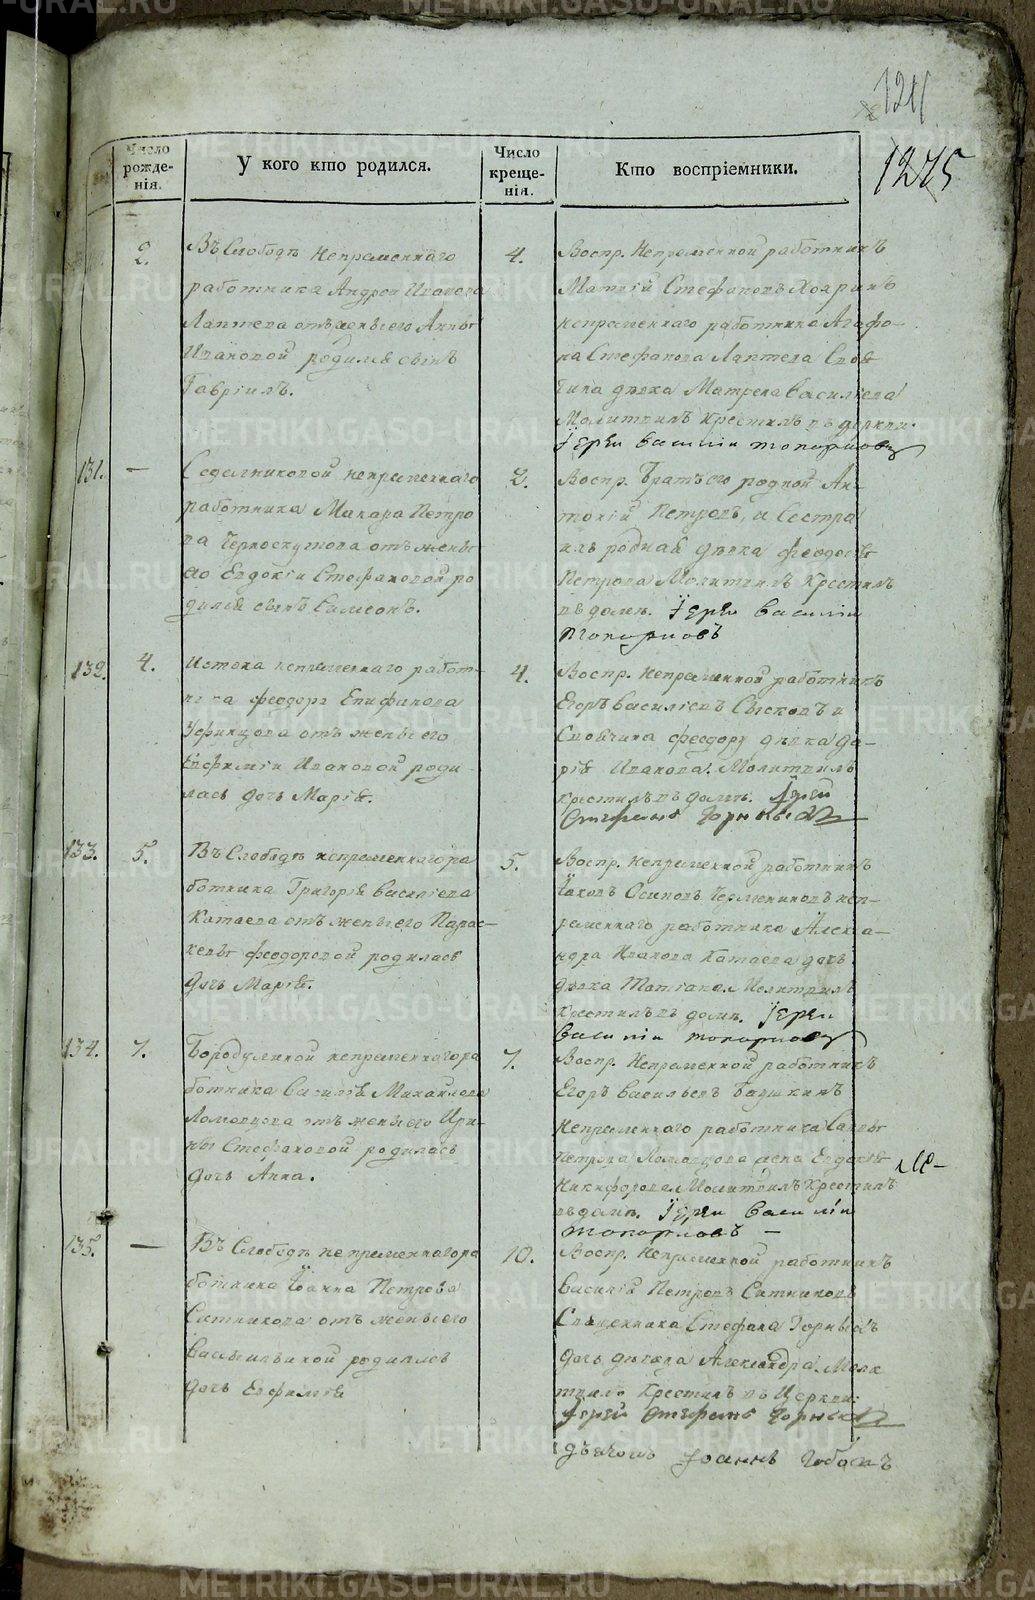 1211
1275
Число рожде-нія.
У кого кто родился.
Число креще-нія.
Кто воспріемники.
2.
Въ Слободѣ непременнаго
работника Андрея Иванова
Лаптева отъ жены его Анны
Ивановой родился сынъ
Гавріилъ.
4.
Воспр. Непременной работникъ
Матвій Стефановъ
непременнаго работника Агафо-
на Стефанова Лаптева
девка Матрена Василіева
Молитвилъ Крестилъ въ церкви.
Іерей Василіи Топорковъ
131.
—
непременнаго
работника Макара Петро
ва Черноскутова отъ жены
его Евдокіи Стефановой ро
дился сынъ Симеонъ.
2.
Воспр. Братъ его родной Ан-
тоній Петровъ, и Сестра
ихъ родная дѣвка Феодосья
Петрова Молитвилъ Крестилъ
въ домѣ. Іерей Василіи
Топорковъ
132.
4.
Истока непременнаго работ-
ника Феодора Епифанова
Уфинцова отъ жены его
Евфиміи Ивановой роди-
лась дочь Марія.
4.
Воспр. Непременной работникъ
Егоръ Василіевъ и
Феодора дѣвка Да-
рія Иванова. Молитвилъ
Крестилъ въ домѣ. Іерей
Стефанъ Горныхъ
133.
5.
Въ Слободѣ непременнаго ра
ботника Григорія Василіева
Катаева отъ жены его Парас-
кевы Феодоровой родилась
дочь Марія.
5.
Воспр. Непременной работникъ
Іаковъ Осиповъ неп-
ременнаго работника Алекса-
ндра Иванова Катаева дочь
дѣвка Татіана. Молитвилъ
Крестилъ въ домѣ. Іерей
Василіи Топорковъ
134.
7.
Бородулиной непременнаго ра
ботника Василія Михаилова
Ломовцова отъ жены его Ири-
ны Стефановой родилась
дочь Анна.
7.
Воспр. Непременной работникъ
Егоръ Васильевъ
Непременнаго работника Саввы
Петрова Ломовцова жена Евдокія
Никифорова. Молитвилъ Крестилъ
въ домѣ. Іерей Василіи
Топорковъ —
135.
—
Въ Слободѣ непременнаго ра
ботника Іоанна Петрова
Ситникова отъ жены его
Васильевной родилась
дочь Евфимія
10.
Воспр. Непременной работникъ
Василій Петровъ Ситниковъ
Священника Стефана Горныхъ
дочь девица Александра. Моли
твилъ Крестилъ въ Церкви:
Іерей Стефанъ Горныхъ
дьячокъ Іоаннъ
METRIKI.GASO-URAL.RU